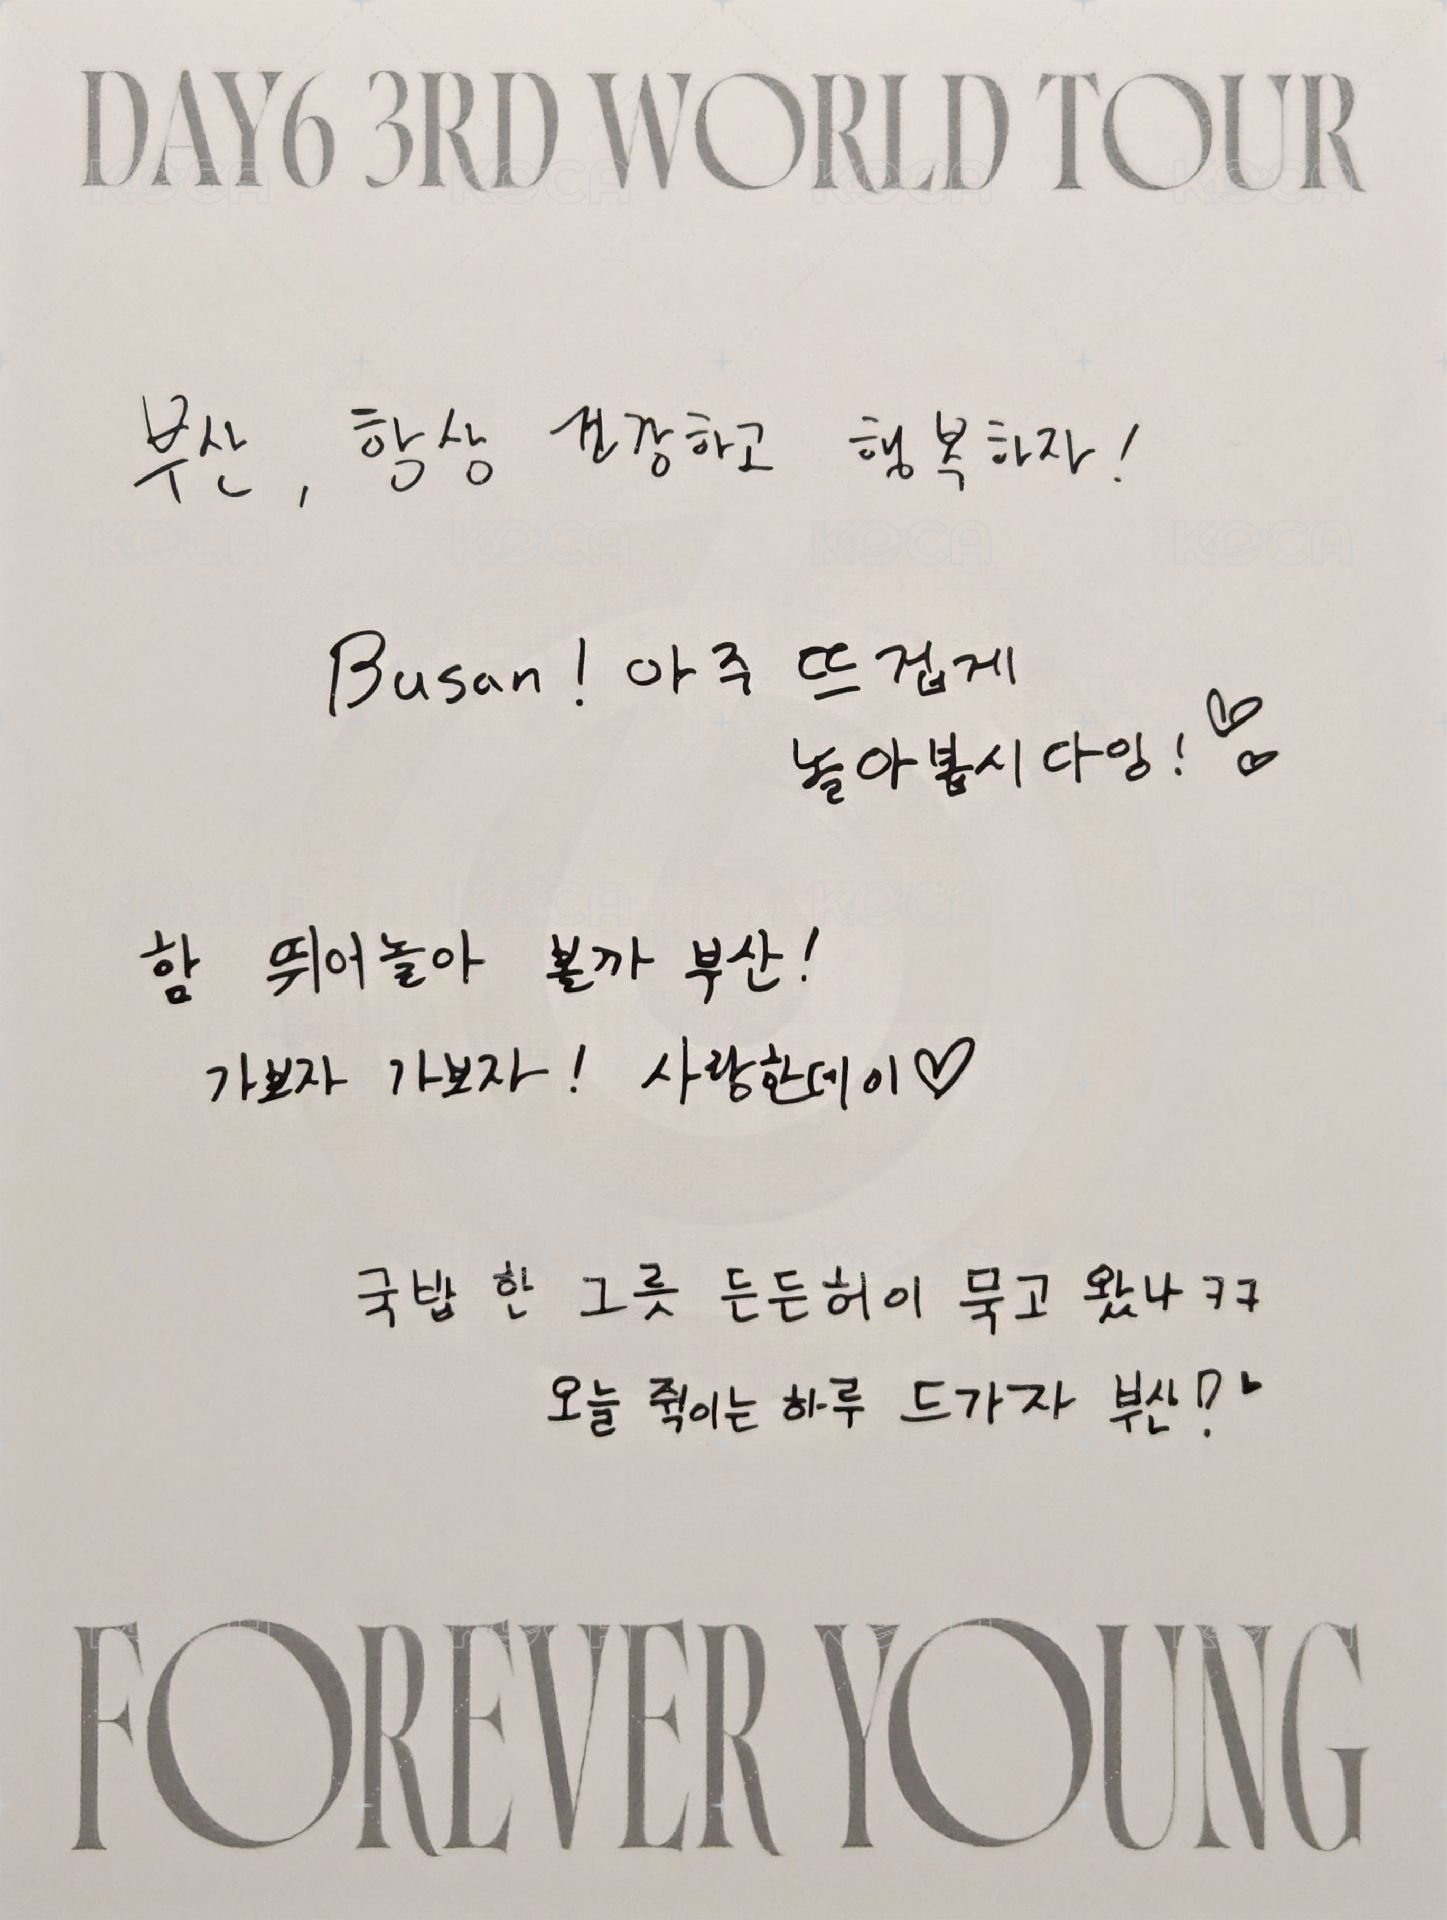 DAY6 3RD WORLD TOUR
부산, 항상 건강하고 행복하자!
Busan! 아주 뜨겁게
놀아봅시다잉! ♡♡
함 뛰어놀아 볼까 부산!
가보자 가보자! 사랑한데이♡
국밥 한 그릇 든든허이 묵고 왔나 ㅋㅋ
오늘 쥑이는 하루 드가자 부산!
FOREVER YOUNG
KOCA